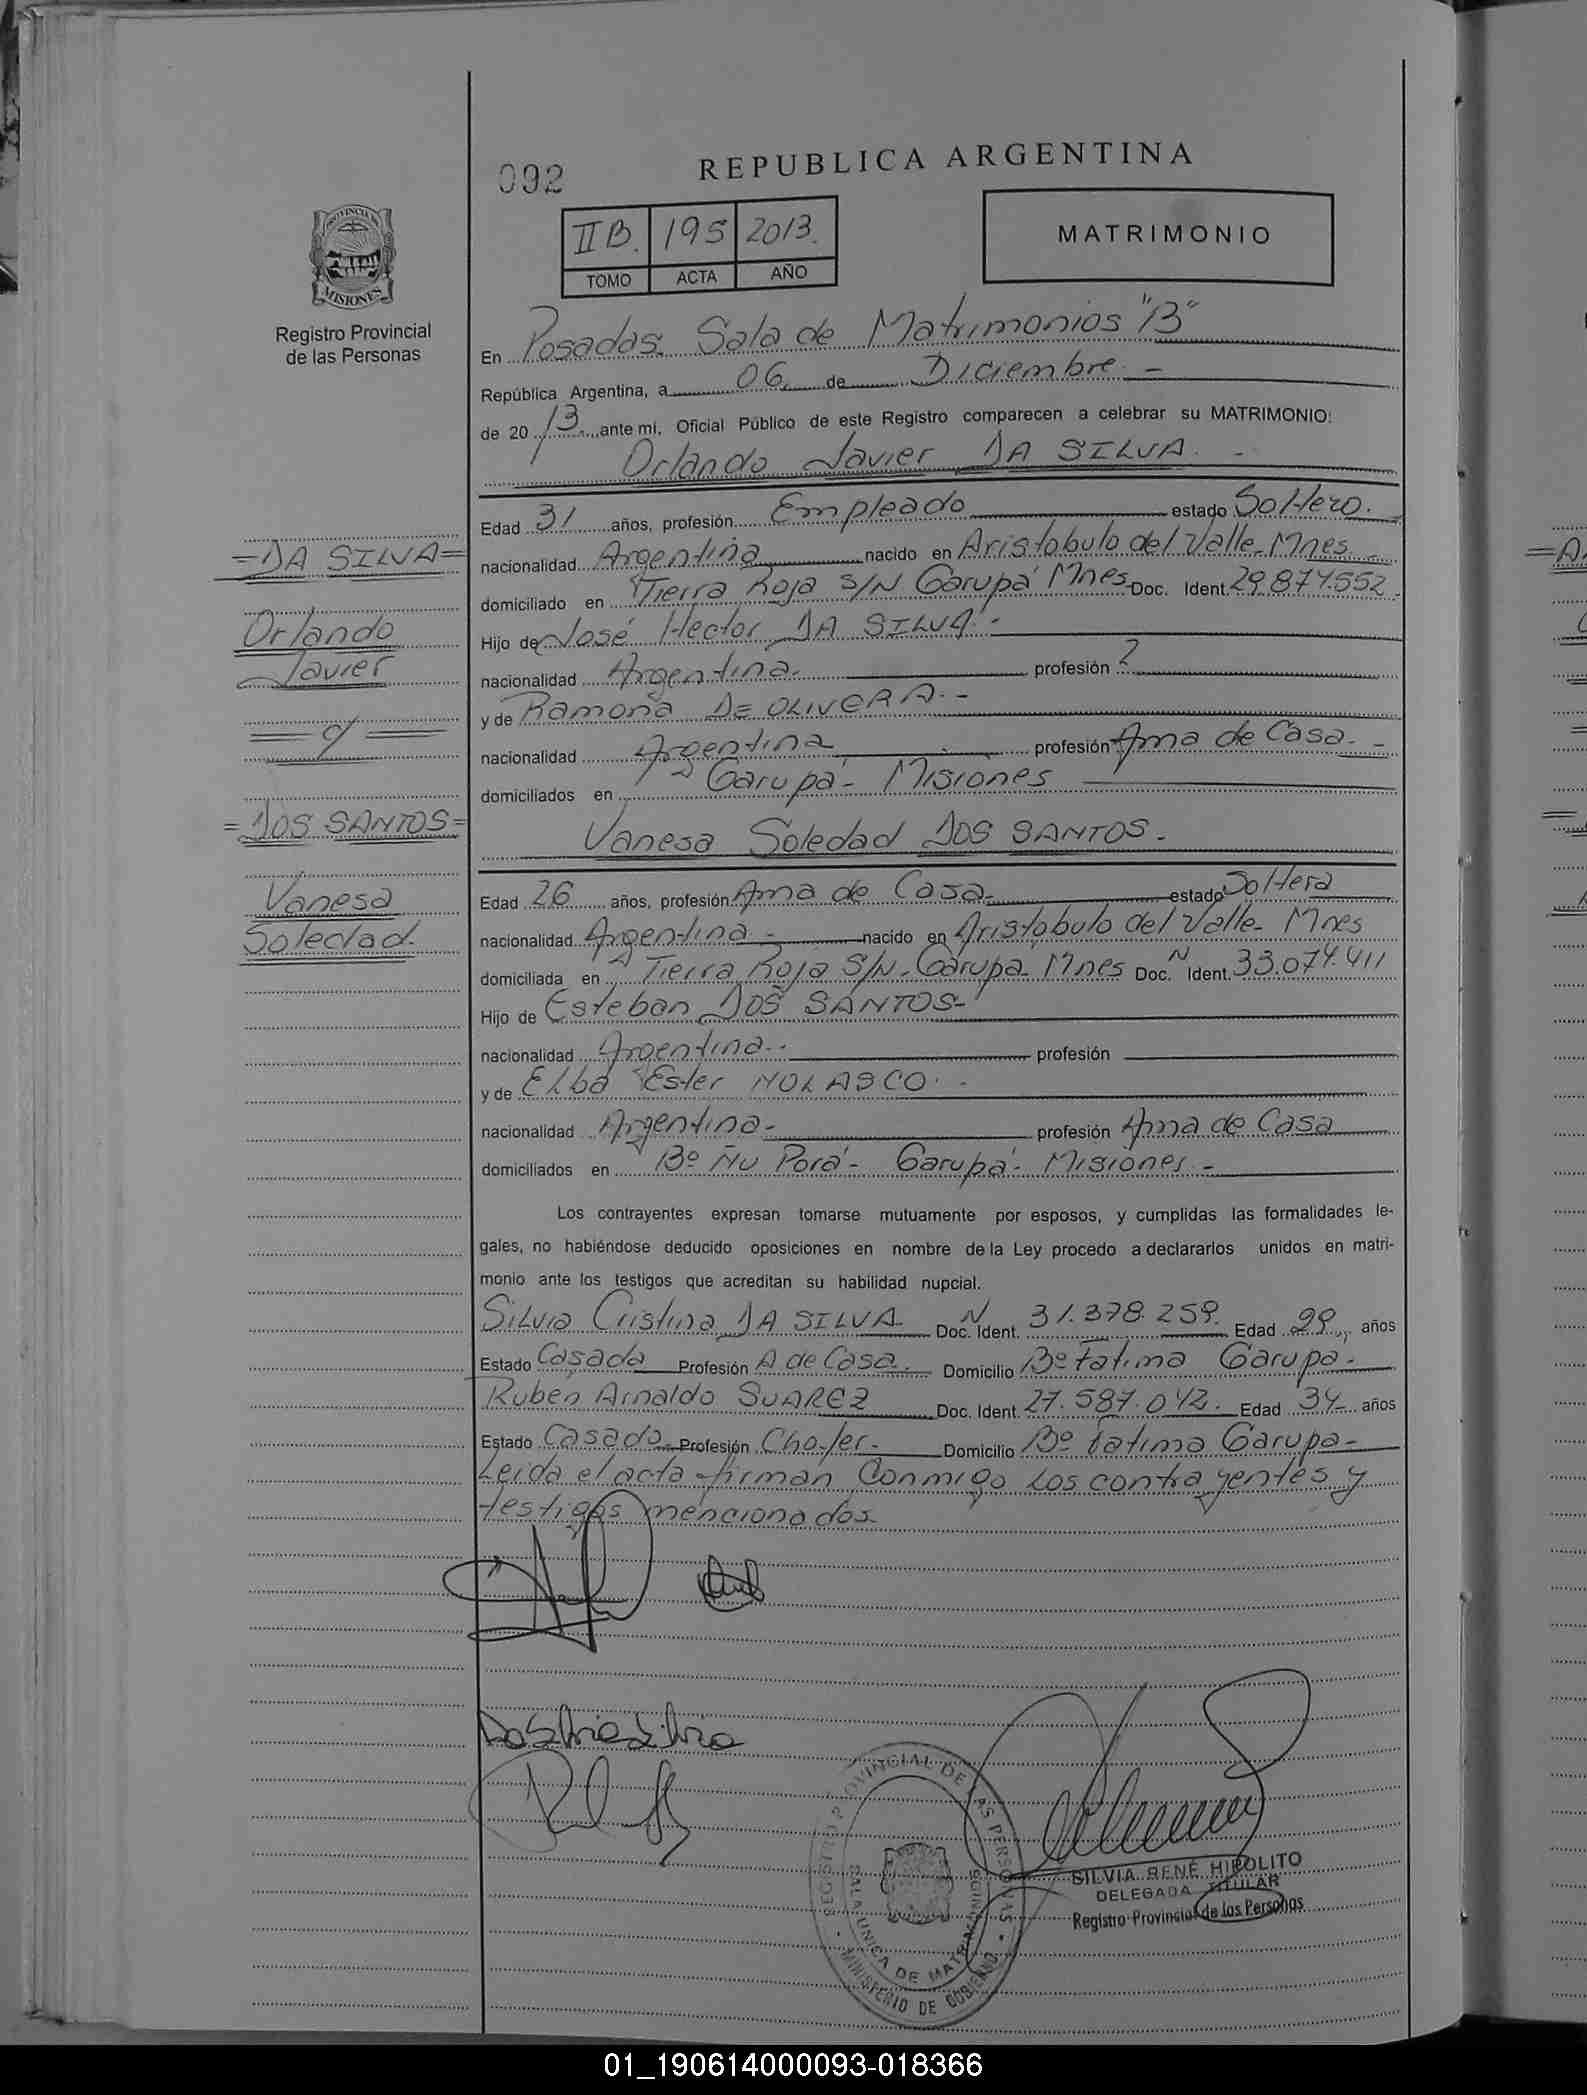 092
REPUBLICA ARGENTINA
II B. 195 2013.
TOMO ACTA AÑO
MATRIMONIO
PROVINCIA DE
MISIONES
Registro Provincial
de las Personas
En Posadas. Sala de Matrimonios "B"
República Argentina, a 06 de Diciembre. -
de 20 13. ante mi, Oficial Público de este Registro comparecen a celebrar su MATRIMONIO:
Orlando Javier DA SILVA. -
Edad 31 años, profesión Empleado estado Soltero.
nacionalidad Argentina nacido en Aristobulo del Valle-Mnes -
domiciliado en Tierra Roja S/N Garupá Mnes- Doc. Ident. 29.874.552.
Hijo de José Hector DA SILVA. -
nacionalidad Argentina. profesión ?
y de Ramona DE OLIVERA. -
nacionalidad Argentina profesión Ama de Casa. -
domiciliados en Garupá- Misiones
Vanesa Soledad DOS SANTOS.
Edad 26 años, profesión Ama de Casa- estado Soltera
nacionalidad Argentina - nacido en Aristobulo del Valle- Mnes
domiciliada en Tierra Roja S/N- Garupa- Mnes Doc. N Ident. 33.074.411
Hijo de Esteban DOS SANTOS-
nacionalidad Argentina. - profesión
y de Elba Ester NOLASCO. -
nacionalidad Argentina- profesión Ama de Casa
domiciliados en Bº Ñu Porá- Garupá- Misiones -
Los contrayentes expresan tomarse mutuamente por esposos, y cumplidas las formalidades le-
gales, no habiéndose deducido oposiciones en nombre de la Ley procedo a declararlos unidos en matri-
monio ante los testigos que acreditan su habilidad nupcial.
Silvia Cristina DA SILVA Doc. N Ident. 31.378.259. Edad 29 años
Estado Casada Profesión A de Casa. Domicilio Bº Fatima Garupá.
Ruben Arnaldo SUAREZ Doc. Ident. 27.587.042. Edad 34 años
Estado Casado Profesión Chofer- Domicilio Bº Fatima Garupa-
Leida el acta firman Conmigo los contrayentes y
testigos mencionados-
=DA SILVA=
Orlando
Javier
= c/ =
=DOS SANTOS=
Vanesa
Soledad.
Da Silva Silvia
REGISTRO PROVINCIAL DE LAS PERSONAS
SALA UNICA DE MATRIMONIOS
MINISTERIO DE GOBIERNO
SILVIA RENÉ HIPOLITO
DELEGADA TITULAR
Registro Provincial de las Personas
01_190614000093-018366